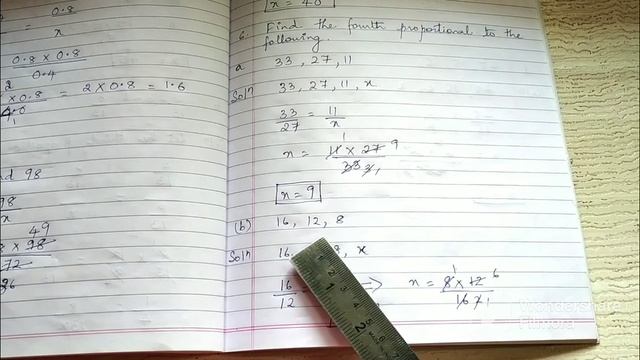 0.8
x
0.8 x 0.8
0.4
2
x 0.8 = 2 x 0.8 = 1.6
1
nd 98
98
x
49
x 98
72
36
x = 40
6. Find the fourth proportional to the
following.
a 33, 27, 11
Soln 33, 27, 11, x
33/27 = 11/x
x = 11 x 27 9
33 3 1
x = 9
(b) 16, 12, 8
Soln 16, x
16/12 = => x = 8 x 12 6
16 2 1
Wondershare
Filmora